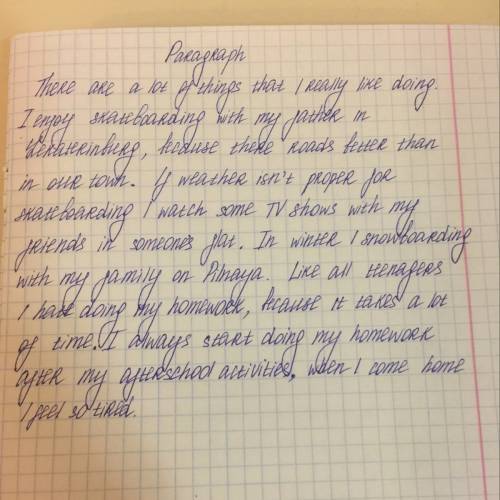 Paragraph
There are a lot of things that I really like doing.
I enjoy skateboarding with my father in
Yekaterinburg, because there roads better than
in our town. If weather isn't proper for
skateboarding I watch some TV shows with my
friends in someone's flat. In winter I snowboarding
with my family on Pilnaya. Like all teenagers
I hate doing my homework, because it takes a lot
of time. I always start doing my homework
after my afterschool activities, when I come home
I feel so tired.